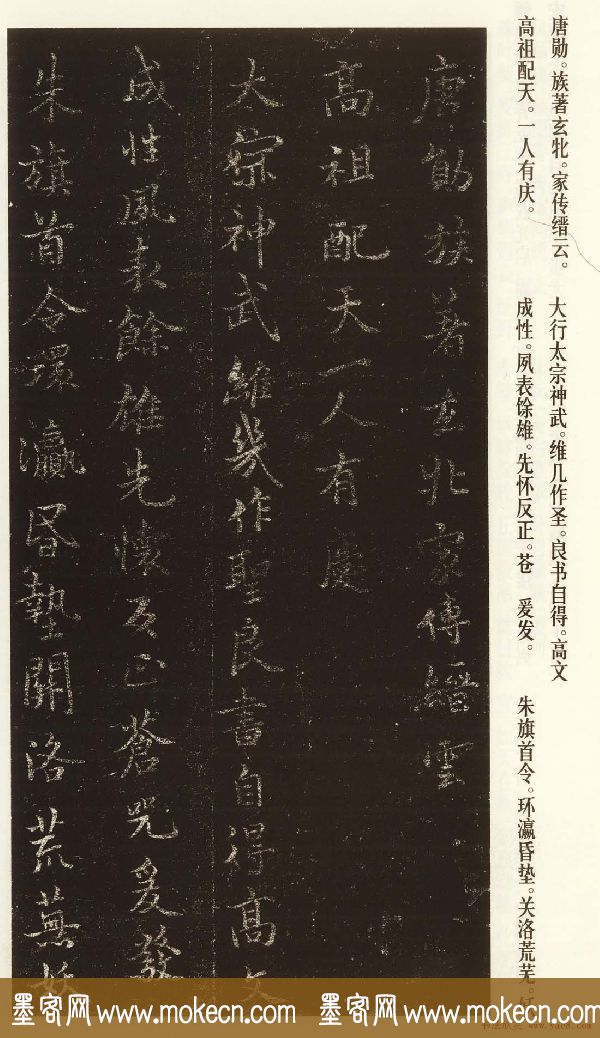 唐勋。族著玄牝。家传缙云。
高祖配天。一人有庆。
大行太宗神武。维几作圣。良书自得。高文
成性。夙表馀雄。先怀反正。苍 爰发。
朱旗首令。环瀛昏垫。关洛荒芜。
唐勛族著玄牝家傳縉雲
高祖配天一人有慶
太宗神武維幾作聖良書自得高文
成性夙表餘雄先懷反正蒼兕爰發
朱旗首令環瀛昏墊關洛荒蕪妖
墨客网 www.mokecn.com 墨客网 www.mokecn.com